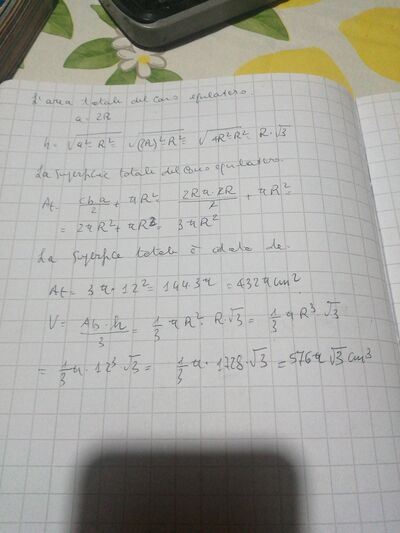 L'area totale del cono equilatero.
a = 2R
h = √a² - R² = √(2R)² - R² = √4R² - R² = R√3
La superficie totale del cono equilatero.
At = Cb·a/2 + πR² = 2Rπ·2R/2 + πR² =
= 2πR² + πR² = 3πR²
La superficie totale è data da.
At = 3π·12² = 144·3π = 432π cm²
V = Ab·h/3 = 1/3 πR²·R√3 = 1/3 πR³·√3
= 1/3 π·12³√3 = 1/3 π·1728·√3 = 576π√3 cm³